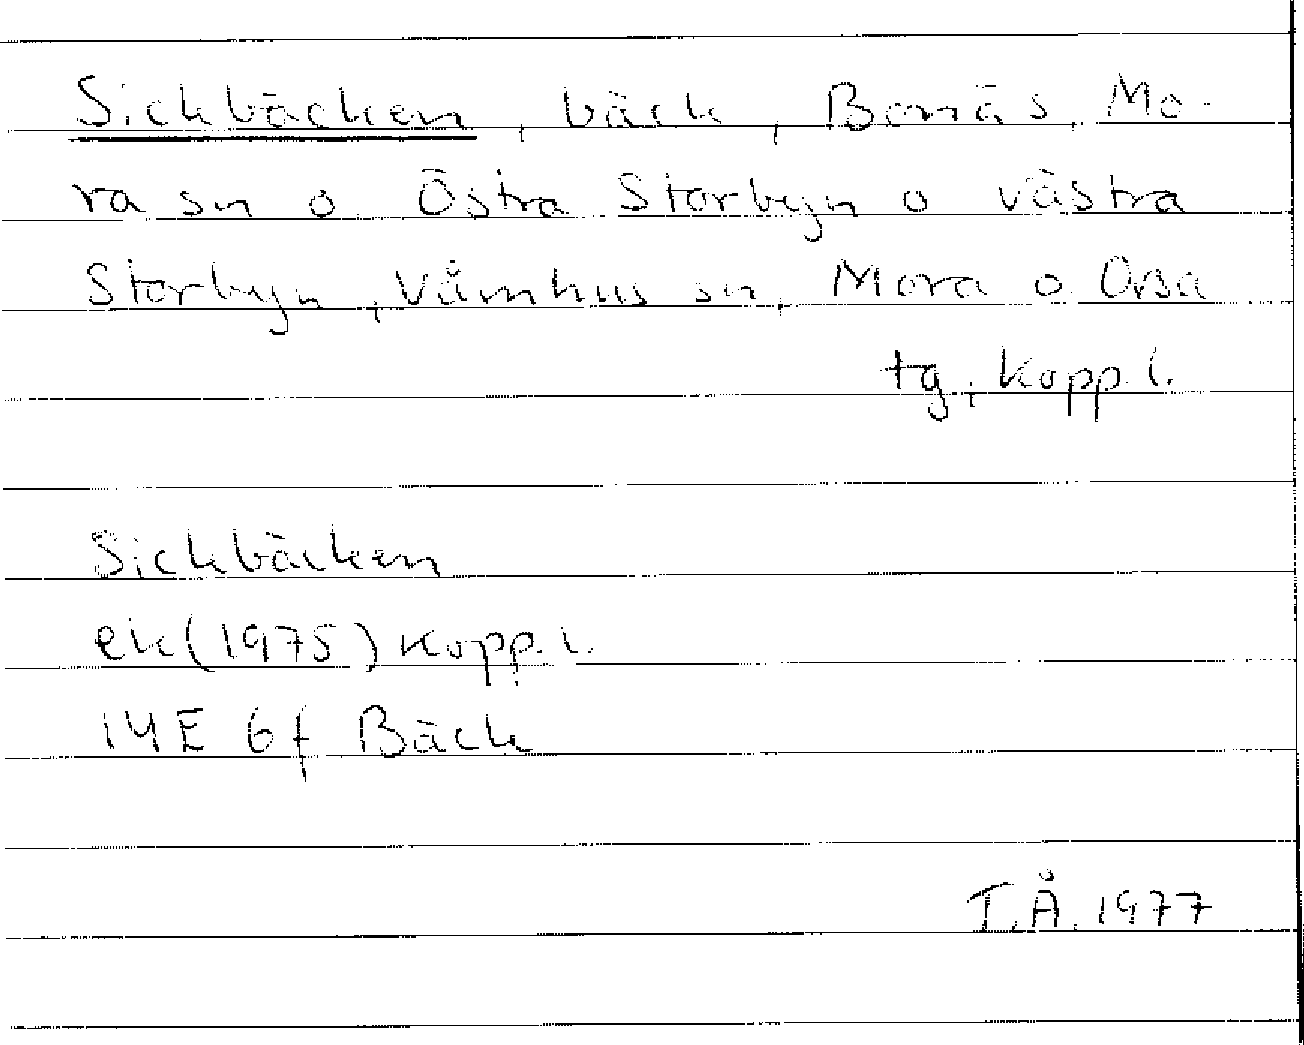 Sickbäcken, bäck, Bonäs, Mo-
ra sn o Östra Storbyn o västra
Storbyn, Våmhus sn, Mora o Orsa
tg, Kopp. l.
Sickbäcken
ek (1975) Kopp. l.
14E 6f Bäck
T.Å. 1977